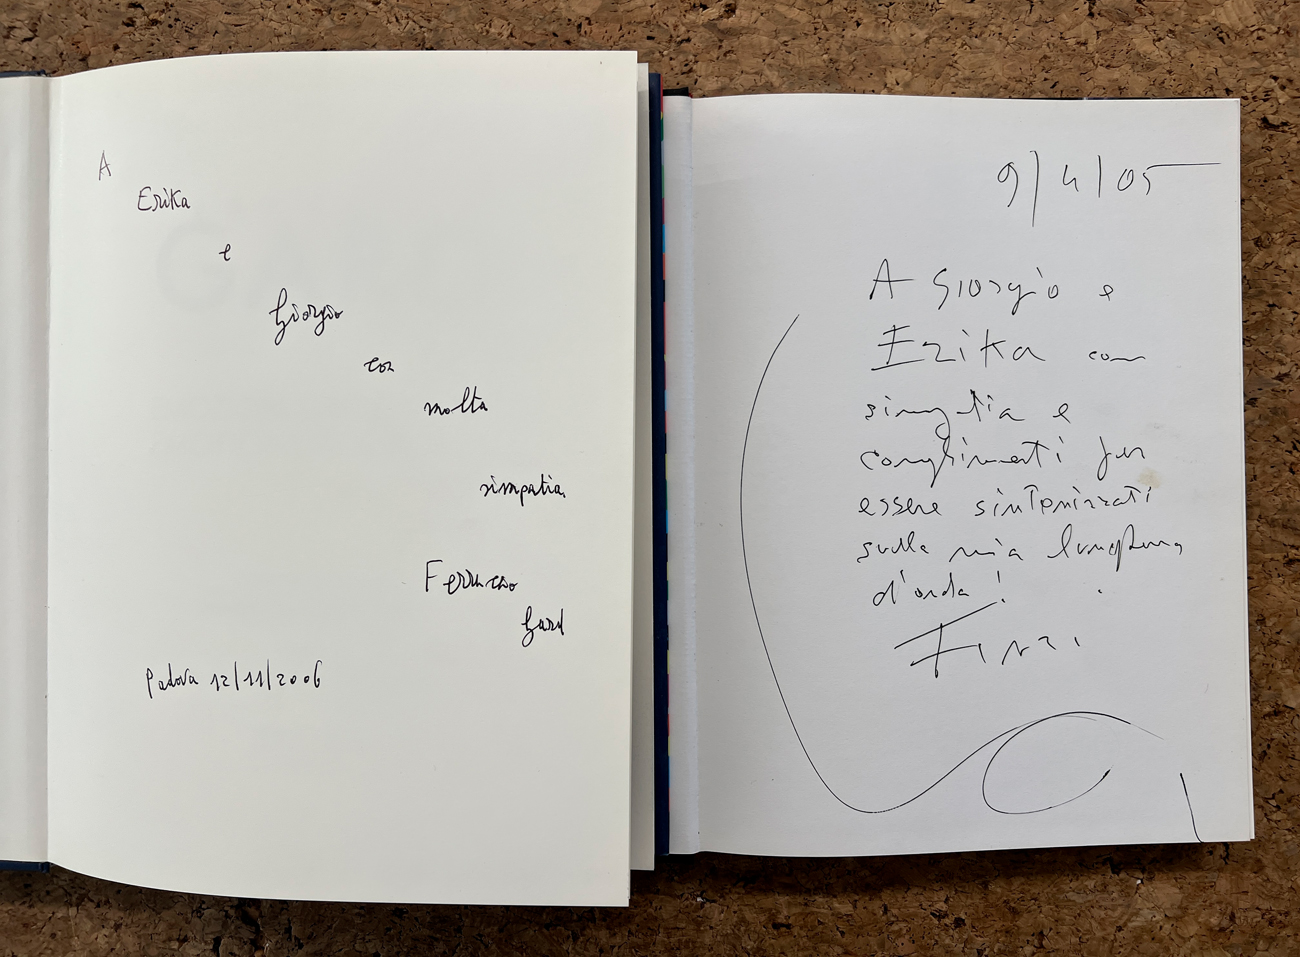 A
Erika
e
Giorgio
con
molta
simpatia
Ferruccio
Gard
Padova 12/11/2006
9/4/05
A Giorgio e
Erika con
simpatia e
complimenti per
essere sintonizzati
sulla mia lunghezza
d'onda!
Finzi